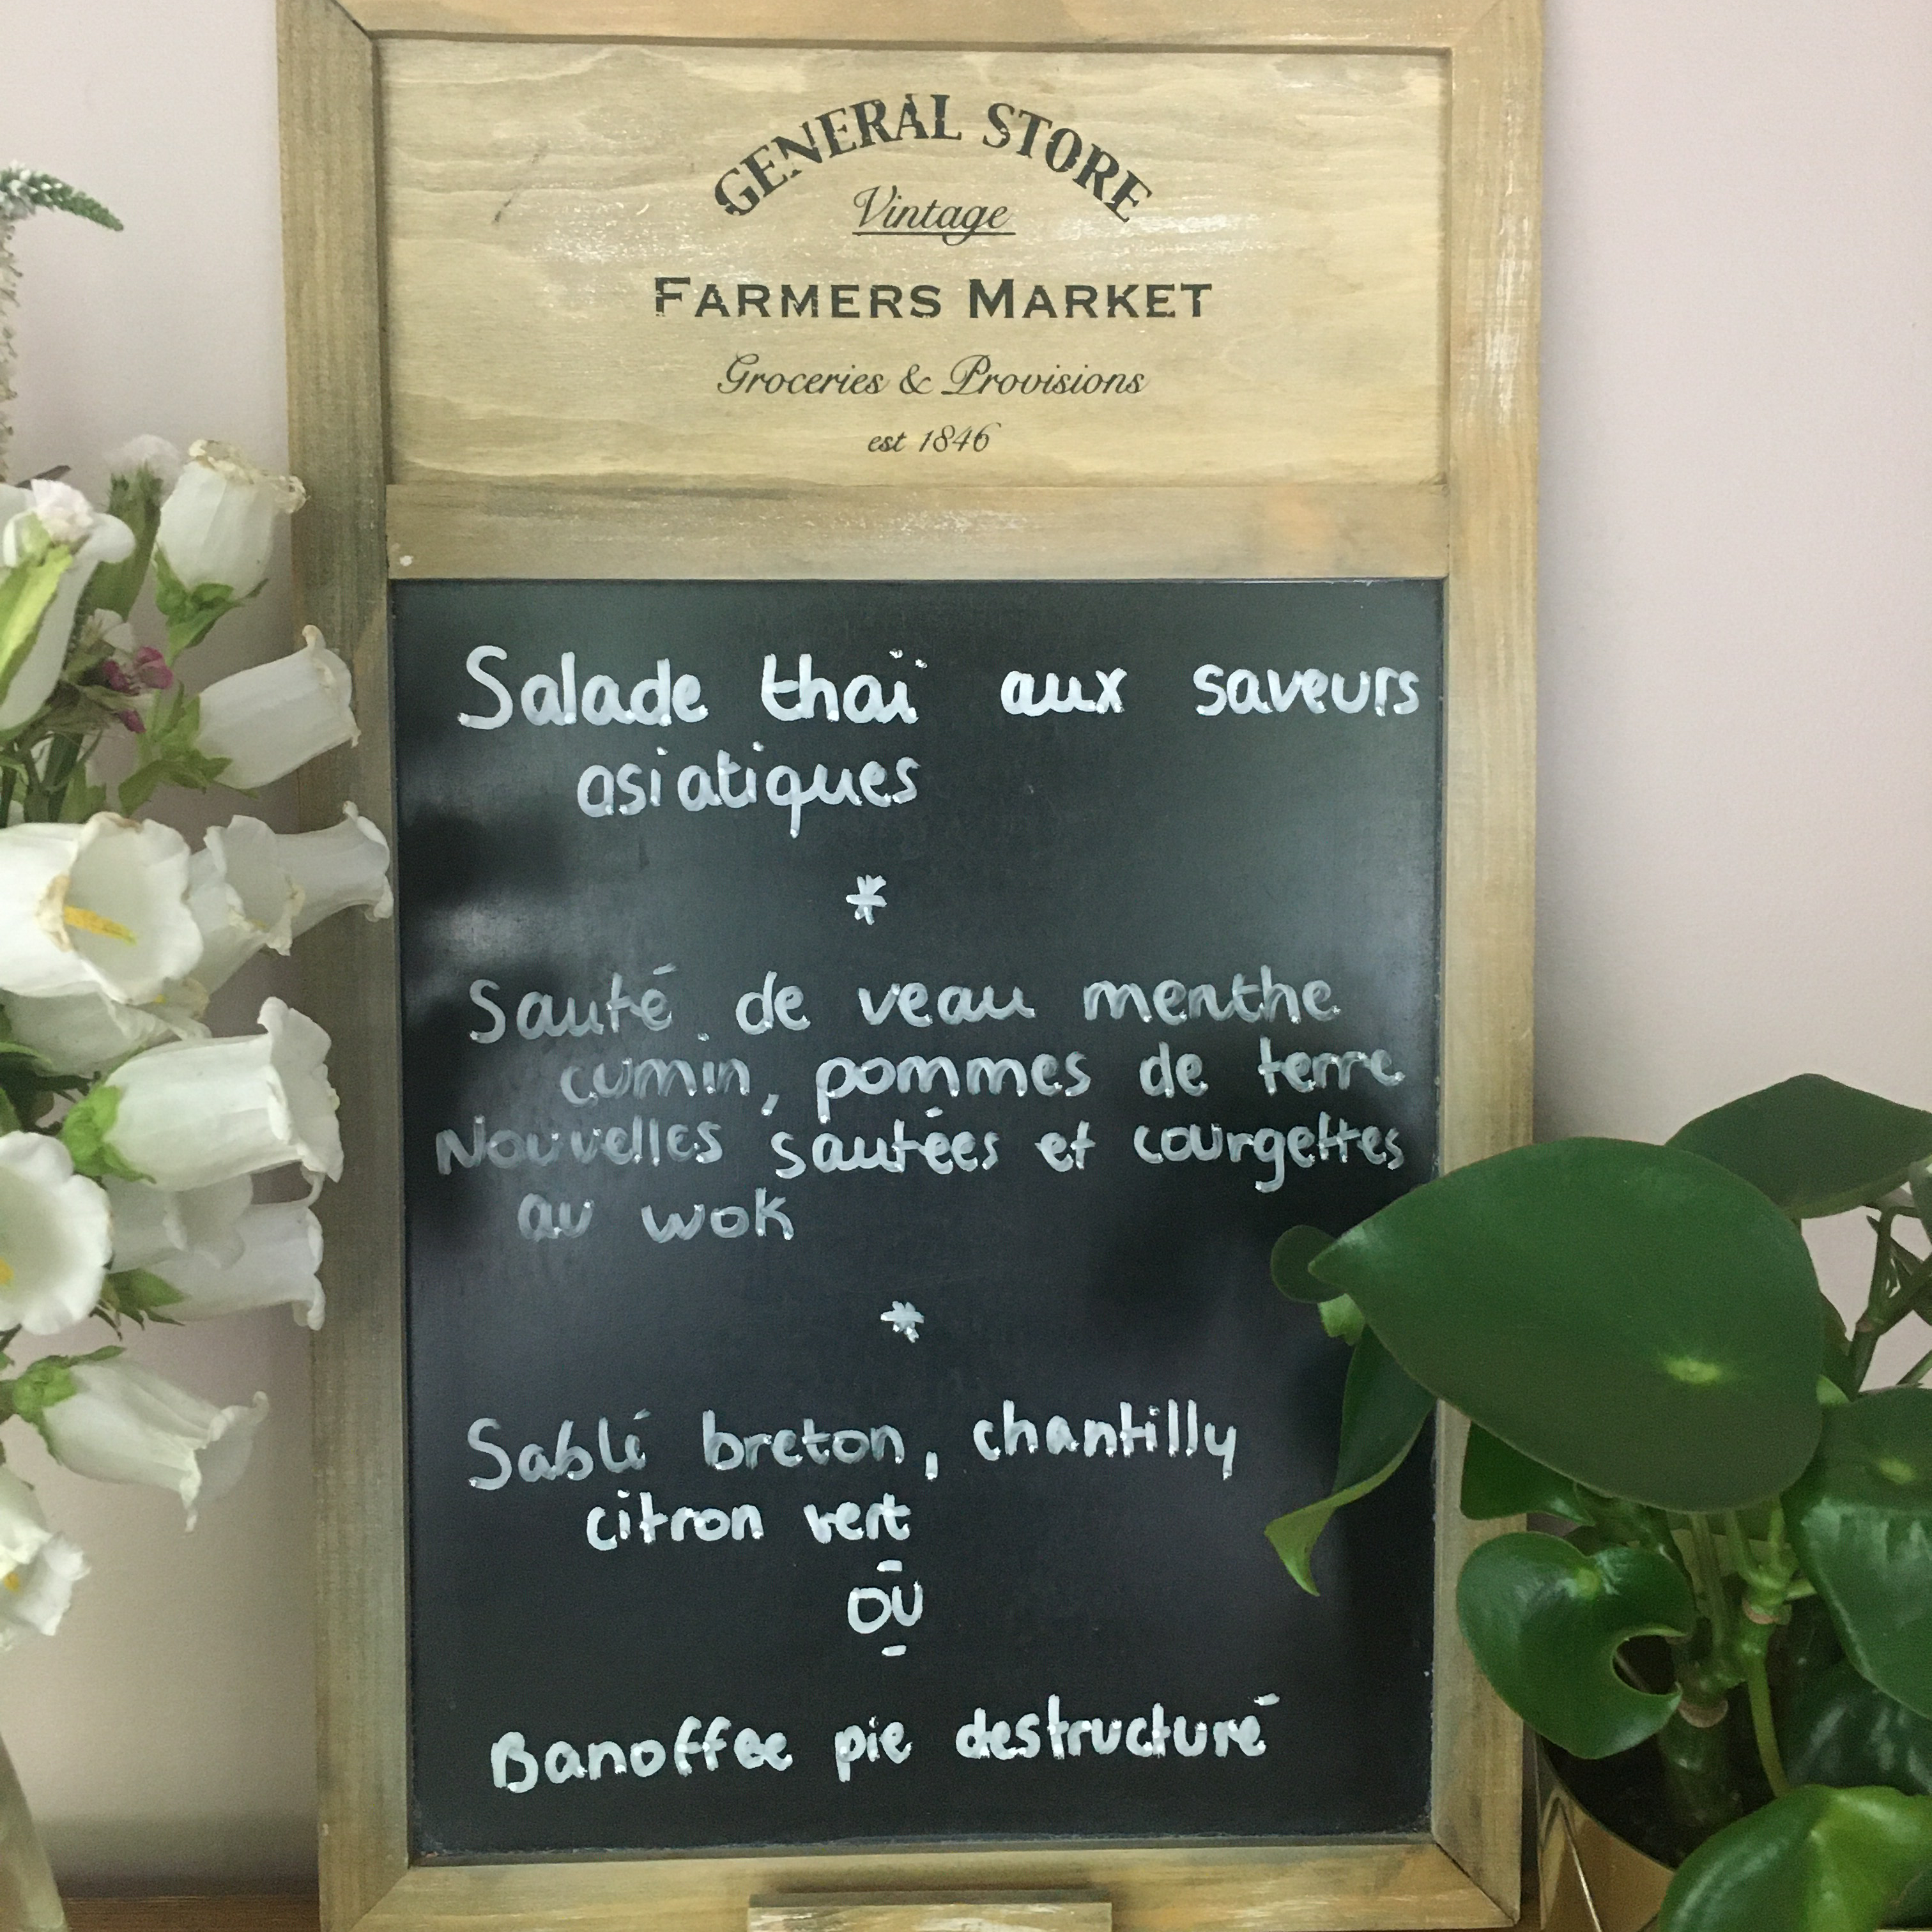 GENERAL STORE
Vintage
FARMERS MARKET
Groceries & Provisions
est 1846
Salade thaï aux saveurs
asiatiques
*
Sauté de veau menthe
cumin, pommes de terre
Nouvelles sautées et courgettes
au wok
*
Sablé breton, chantilly
citron vert
OU
Banoffee pie destructuré